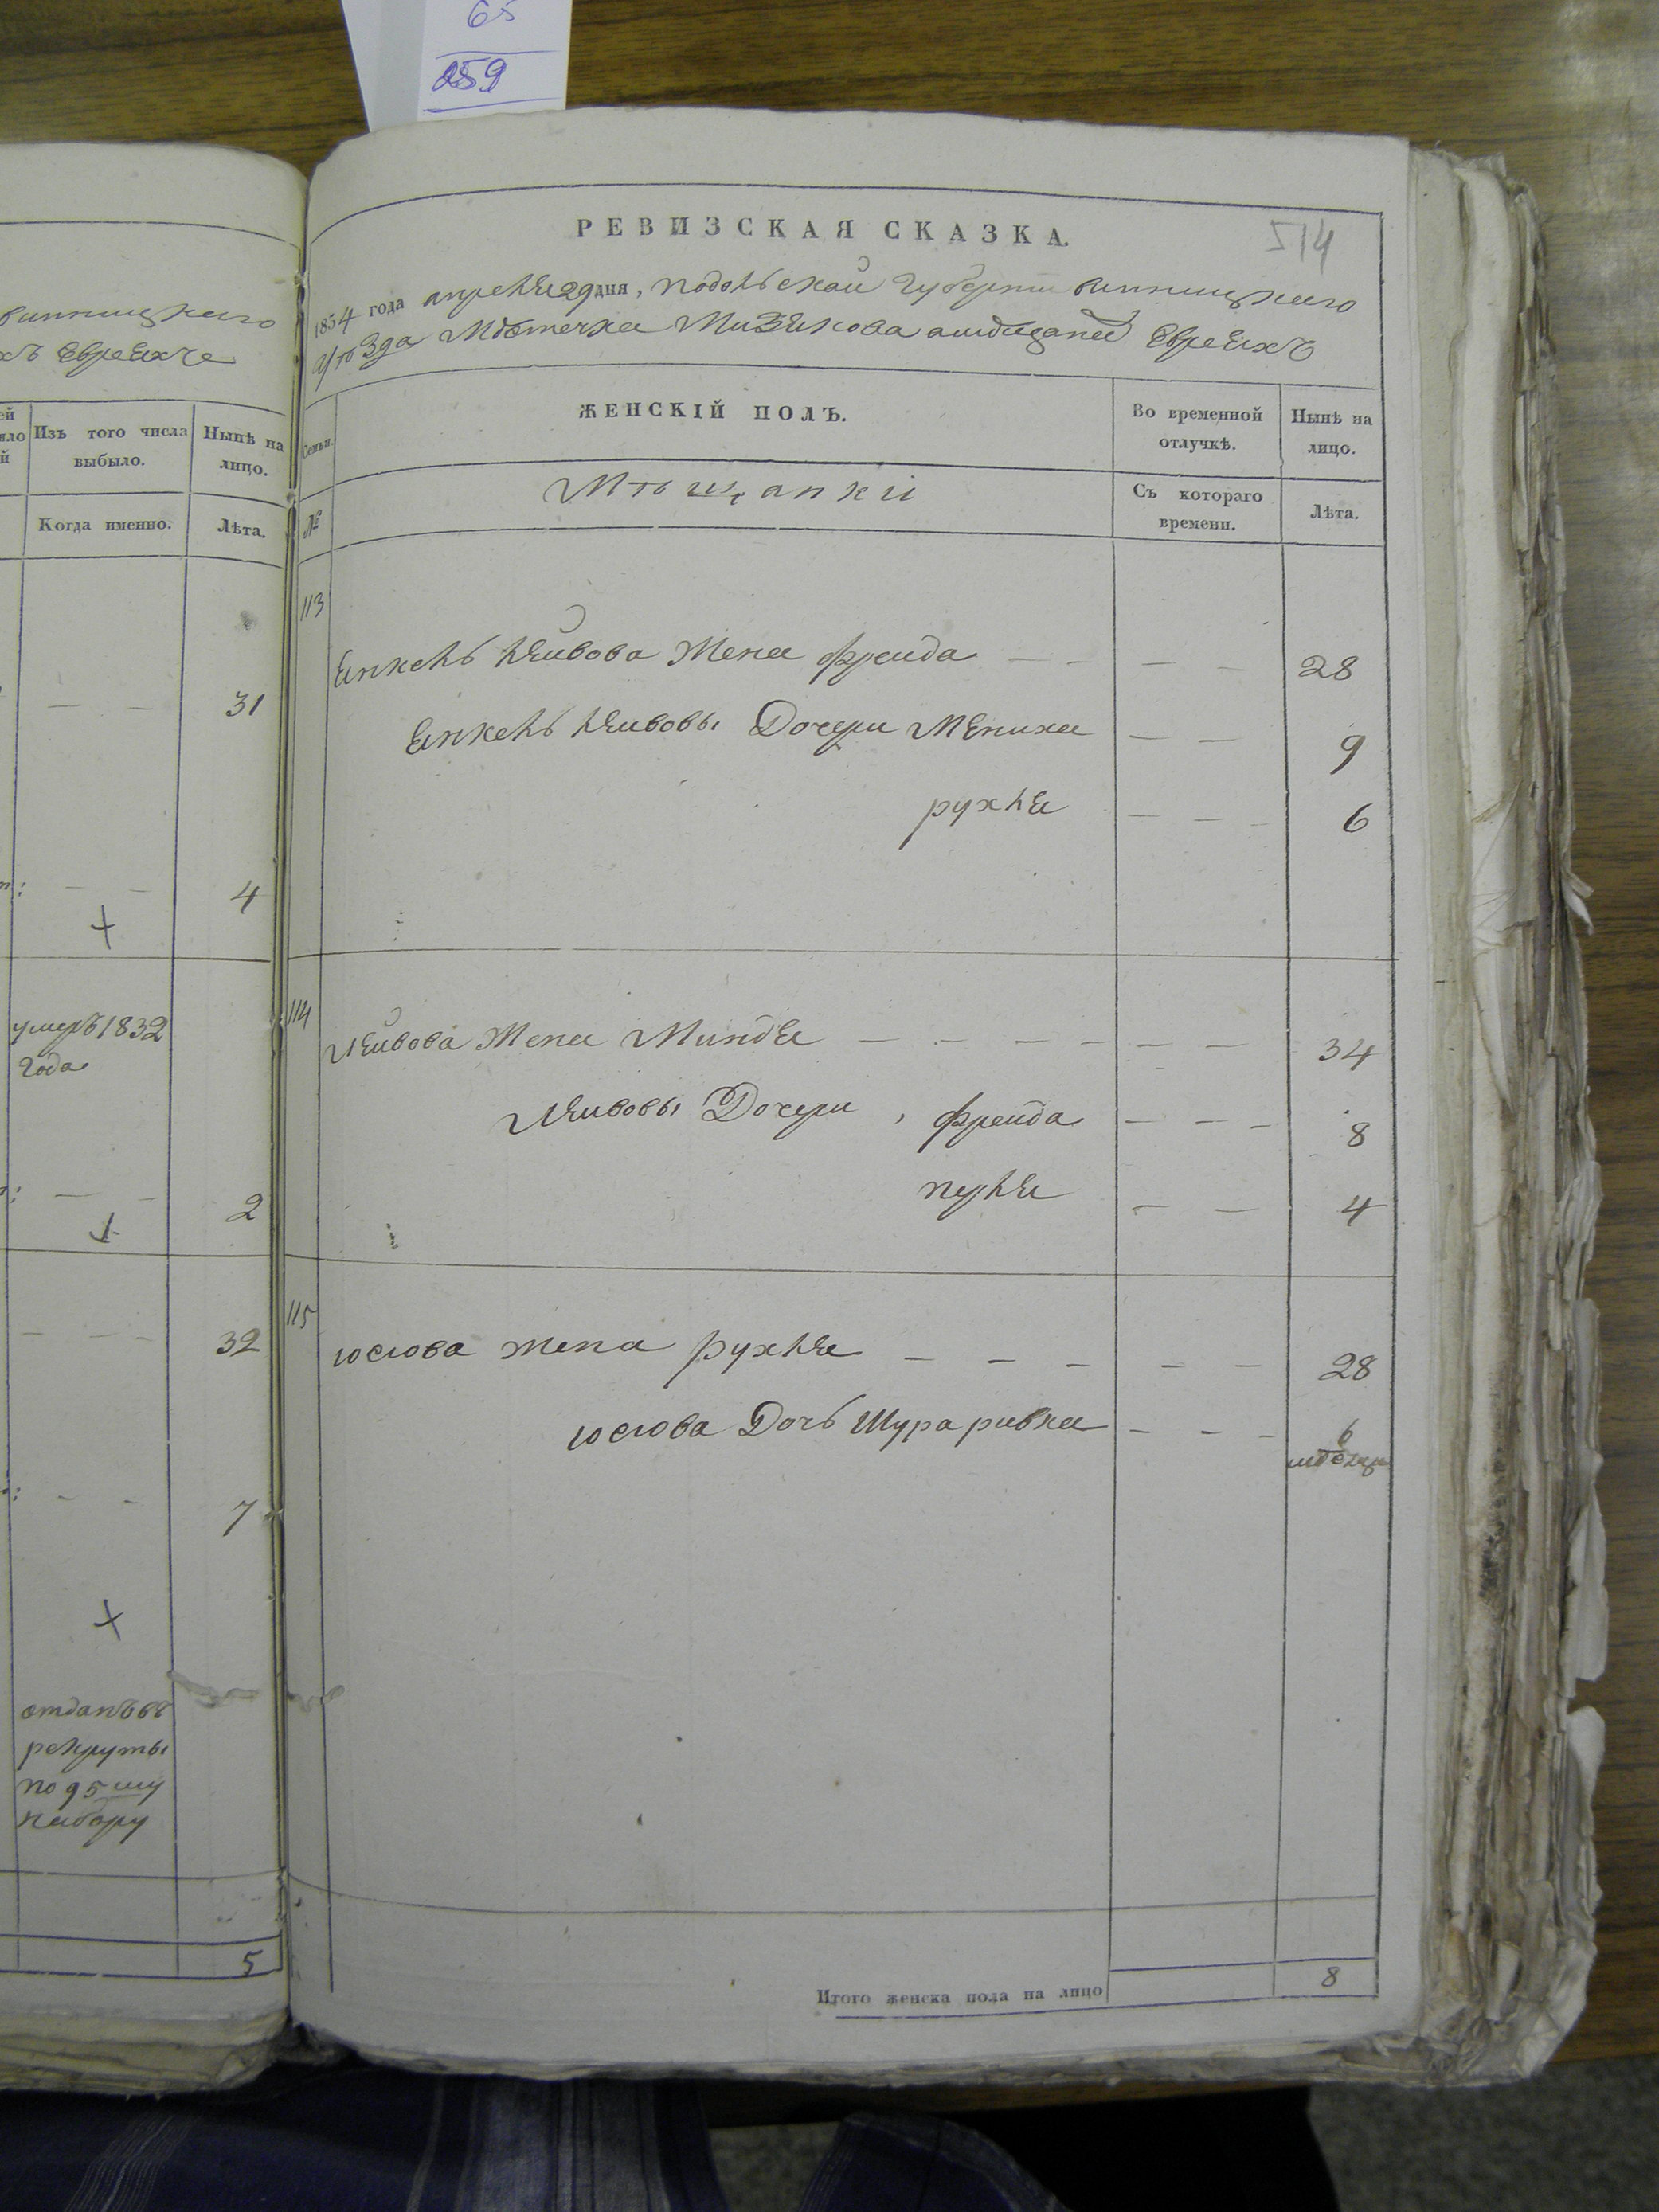 65
259
винницкаго
хъ Евреяхъ
ей
Изъ того числа выбыло.
Нынѣ на лицо.
Когда именно.
Лѣта.
31
4
умеръ 1832
года
2
32
7
отданъ въ
рекруты
по 95 му
набору
5
РЕВИЗСКАЯ СКАЗКА.
514
1854 года апреля 29 дня, Подольской Губерніи винницкаго
уѣзда Мѣстечка Мизякова Евреяхъ
Семьи.
ЖЕНСКІЙ ПОЛЪ.
Во временной отлучкѣ.
Нынѣ на лицо.
№
Мѣщанки
Съ котораго времени.
Лѣта.
113
Янкель Лейбова Жена Фрейда — — — — 28
Янкель Лейбовы Дочери Мениха — — 9
рухля — — — 6
114
Лейбова Жена Миндля — — — — — — — 34
Лейбовы Дочери, Фрейда — — — 8
перля — — 4
115
юсіова жена рухля — — — — — 28
юсіова Дочь Шура ривка — — — 6
мѣсяц
Итого женска пола на лицо 8